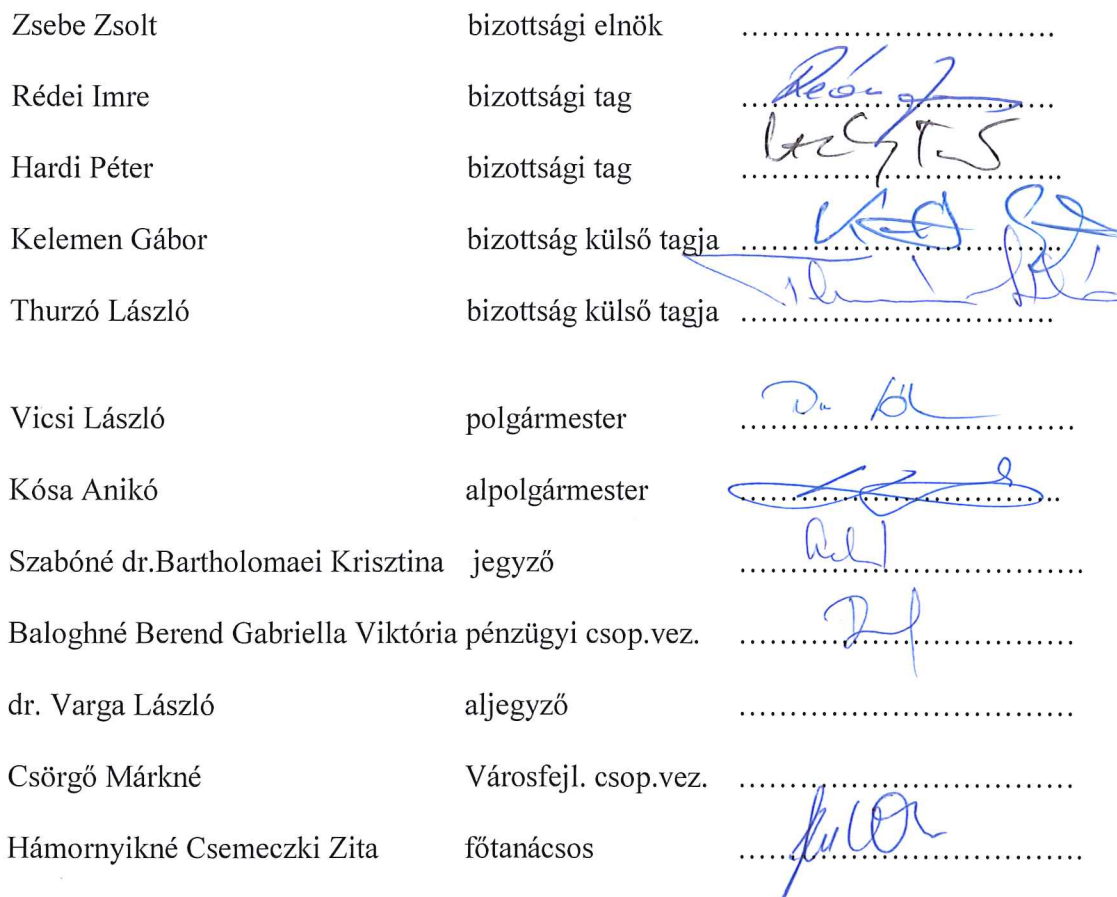 Zsebe Zsolt bizottsági elnök ................................
Rédei Imre bizottsági tag ................................
Hardi Péter bizottsági tag ................................
Kelemen Gábor bizottság külső tagja ................................
Thurzó László bizottság külső tagja ................................
Vicsi László polgármester ................................
Kósa Anikó alpolgármester ................................
Szabóné dr.Bartholomaei Krisztina jegyző ................................
Baloghné Berend Gabriella Viktória pénzügyi csop.vez. ................................
dr. Varga László aljegyző ................................
Csörgő Márkné Városfejl. csop.vez. ................................
Hámornyikné Csemeczki Zita főtanácsos ................................